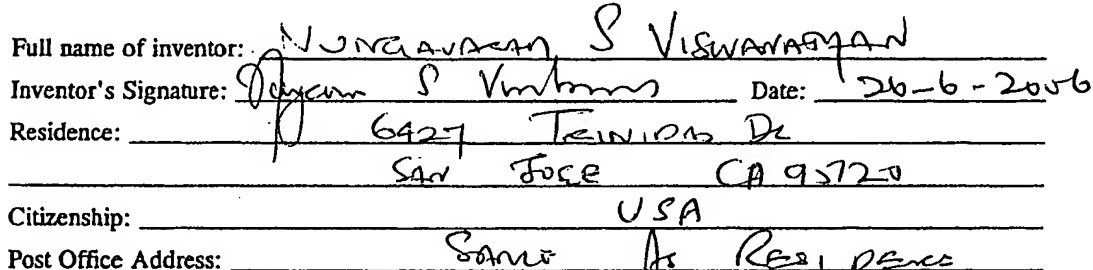 Full name of inventor: S VISWANATHAN
Inventor's Signature: S Date: 26-6-2006
Residence: 6427 TRINIDAD DR
SAN JOSE CA 95120
Citizenship: USA
Post Office Address: SAME AS RESIDENCE